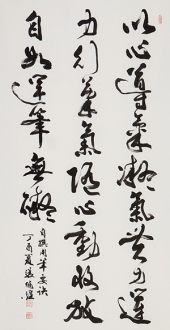 以心導氣凝氣貫力運
力行筆氣隨心動收放
自如運筆無礙
自撰用筆要訣
丁酉夏